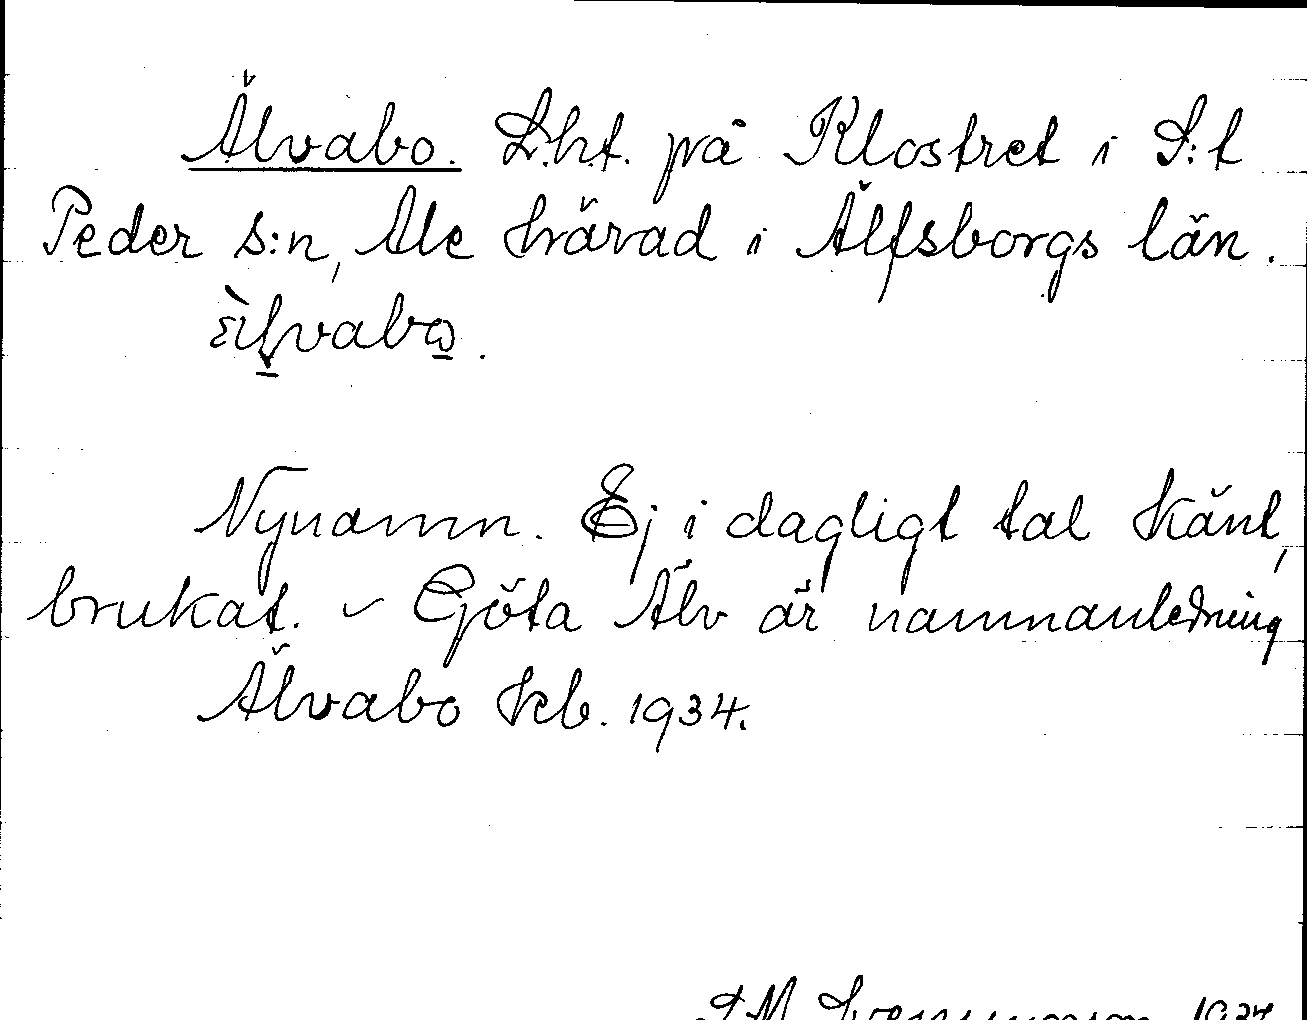 Älvabo. L.ht. på Klostret i S:t
Peder s:n, Ale härad i Älfsborgs län.
Nynamn. Ej i dagligt tal känt,
brukat. – Göta Älv är namnanledning
Älvabo kb. 1934.
1934